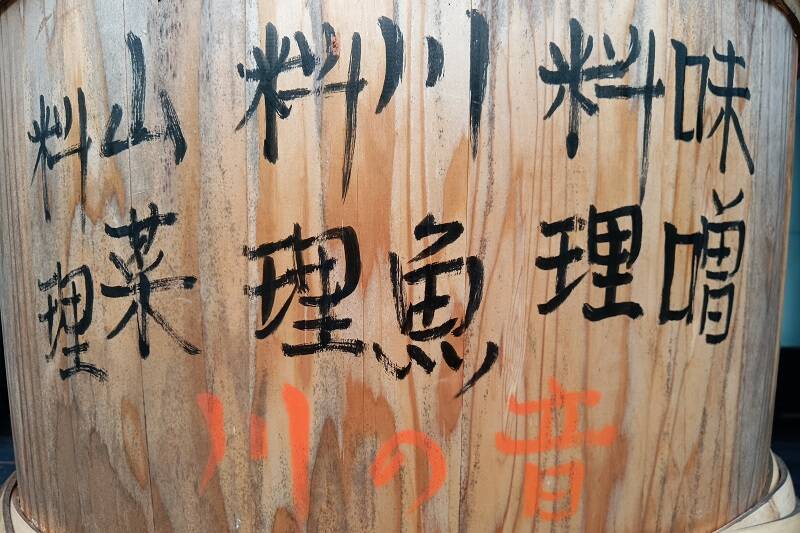 味噌
料理
川魚
料理
山菜
料理
音の川